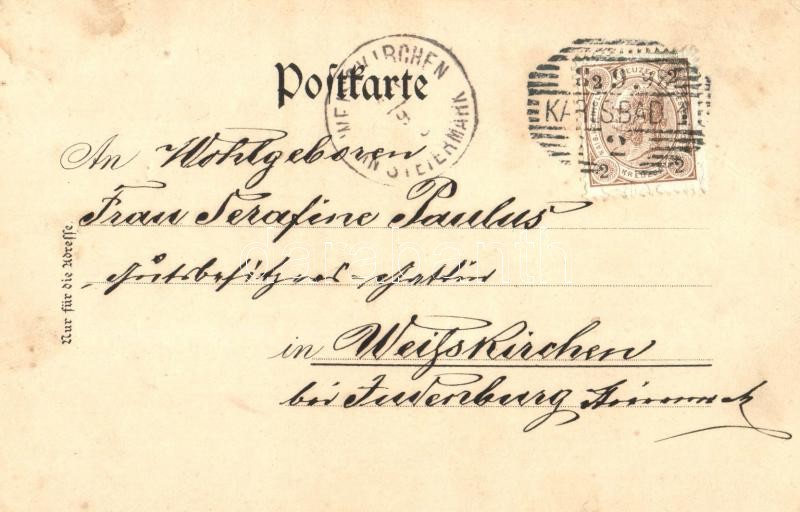 Postkarte
WEISSKIRCHEN IN STEIERMARK
2 KREUZER 2
KARLSBAD
2
2 KREUZER 2
An Wohlgeboren
Frau Serafine Paulus
Gutsbesitzers-Gattin
in Weißkirchen
bei Judenburg Steiermark
Nur für die Adresse.
darabanth